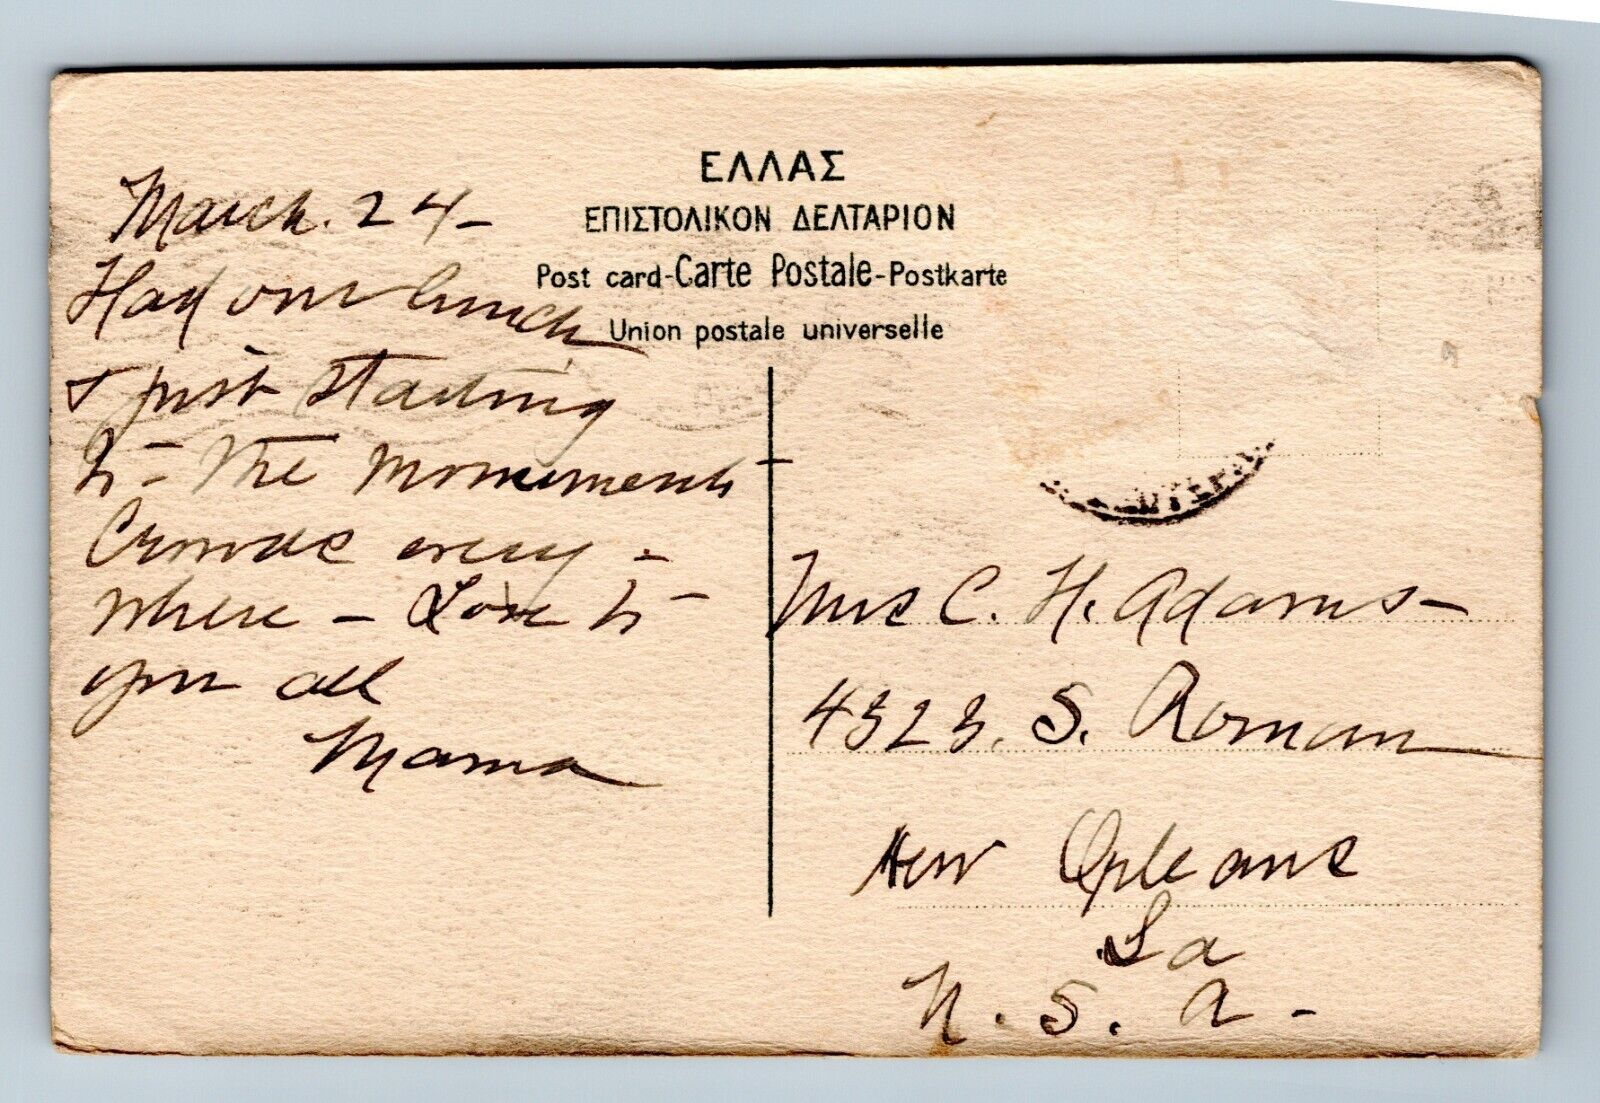 ΕΛΛΑΣ
ΕΠΙΣΤΟΛΙΚΟΝ ΔΕΛΤΑΡΙΟΝ
Post card-Carte Postale-Postkarte
Union postale universelle
March. 24-
Had our lunch
& just starting
to- the monuments
Crowds every-
where - Love to-
you all
Mama
Mrs C. H. Adams-
4323. S. Roman
New Orleans
La
U. S. A-